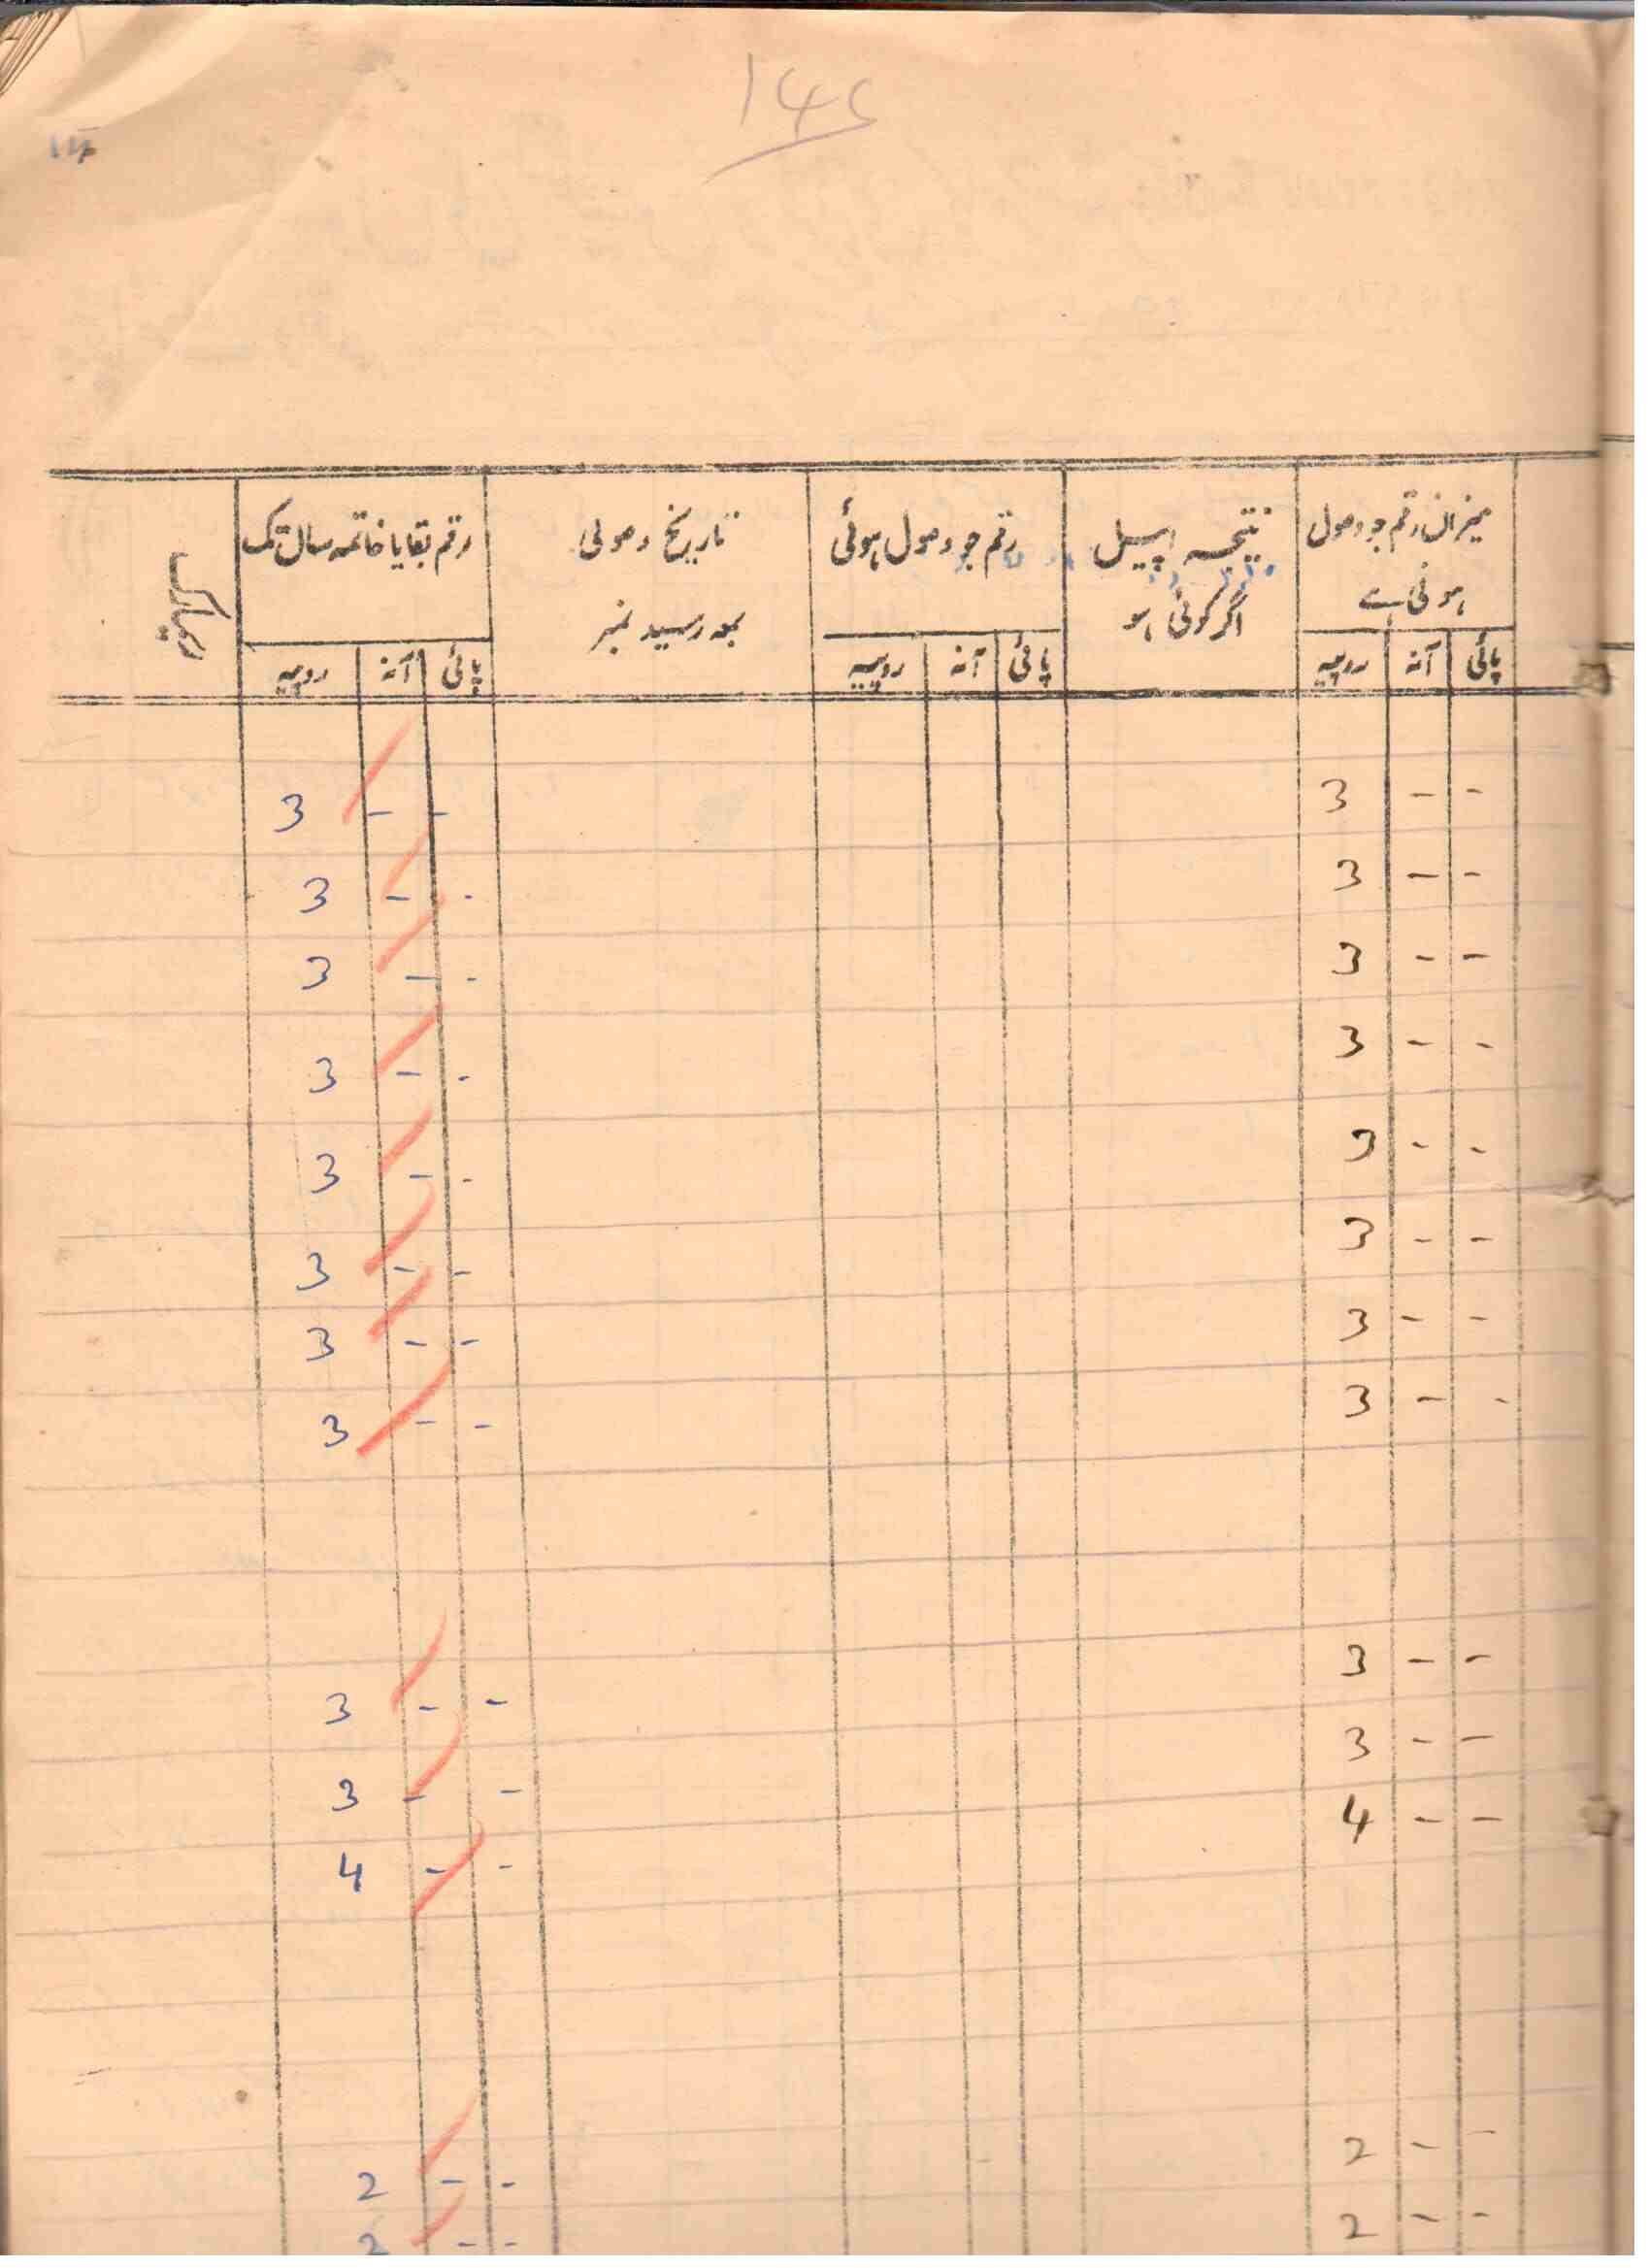 میزان رقم جو وصول ہونی ہے | نتیجہ اپیل اگر کوئی ہو | رقم جو وصول ہوئی | تاریخ وصولی معہ رسید نمبر | رقم بقایا خاتمہ سال تک | ریمارک
پائی | آنہ | روپیہ | پائی | آنہ | روپیہ | پائی | آنہ | روپیہ
- | - | 3 | - | - | 3
- | - | 3 | - | - | 3
- | - | 3 | - | - | 3
- | - | 3 | - | - | 3
- | - | 3 | - | - | 3
- | - | 3 | - | - | 3
- | - | 3 | - | - | 3
- | - | 3 | - | - | 3
- | - | 3 | - | - | 3
- | - | 3 | - | - | 3
- | - | 4 | - | - | 4
- | - | 2 | - | - | 2
- | - | 2 | - | - | 2